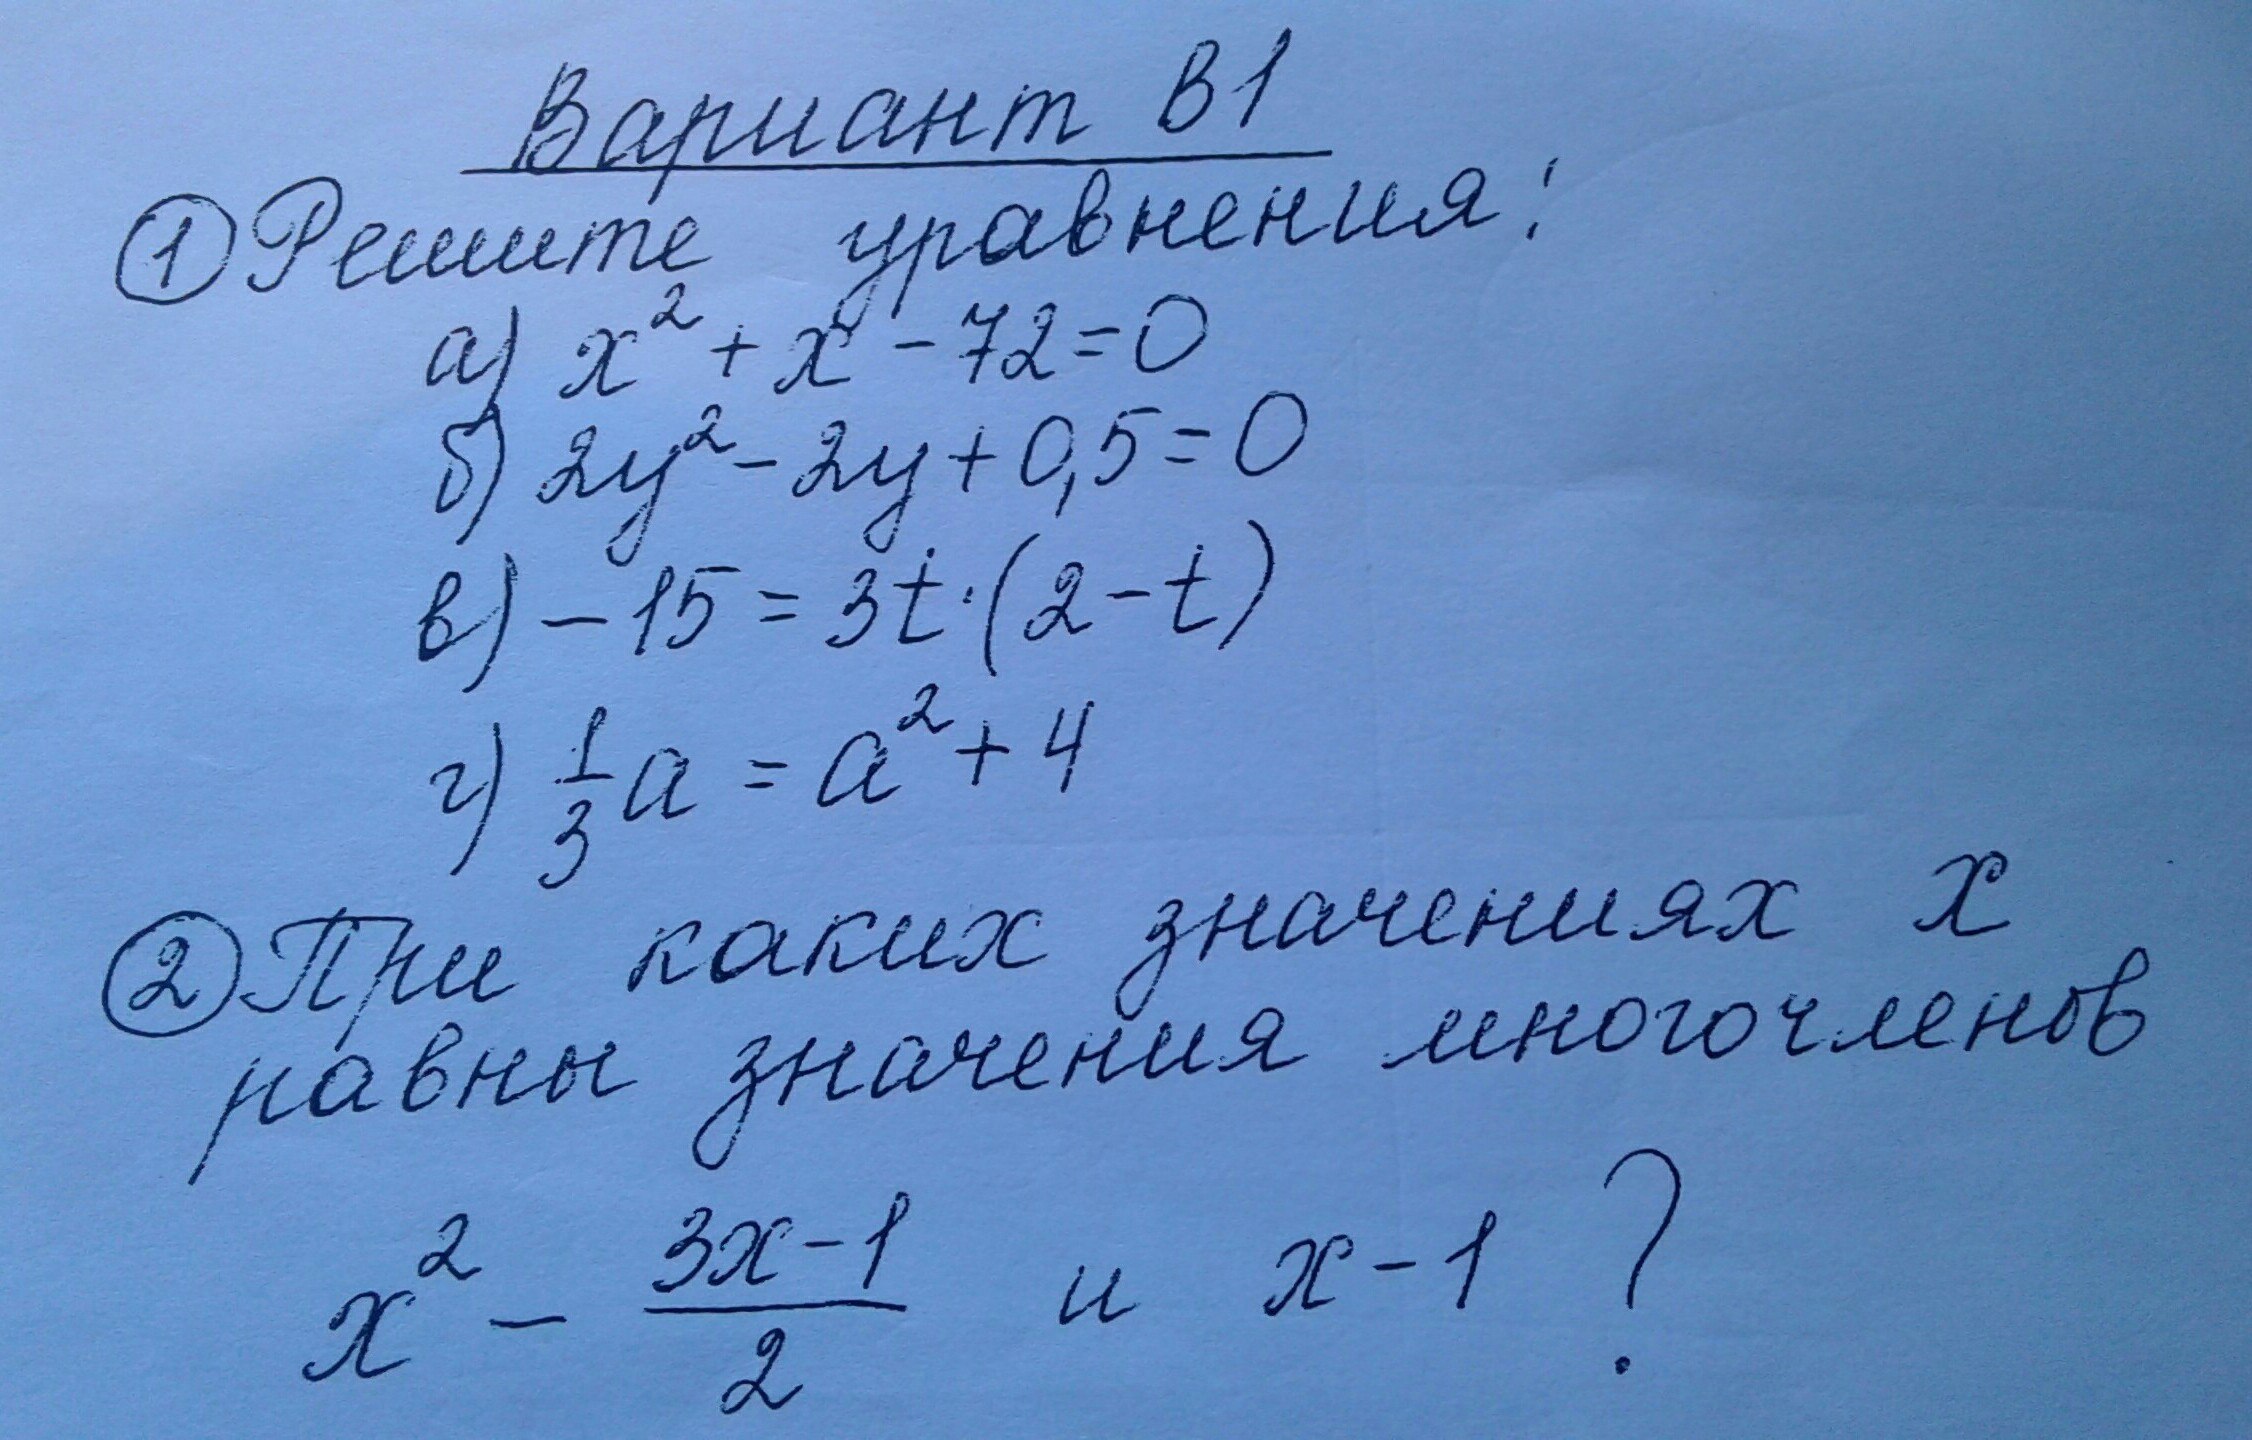 Вариант В1
① Решите уравнения:
а) x² + x - 72 = 0
б) 2y² - 2y + 0,5 = 0
в) - 15 = 3t · (2 - t)
г) 1/3 a = a² + 4
② При каких значениях x
равны значения многочленов
x² - (3x - 1)/2 и x - 1 ?